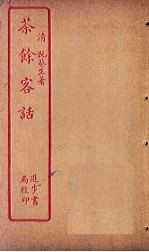 清 阮葵生著
茶餘客話
進步書
局校印